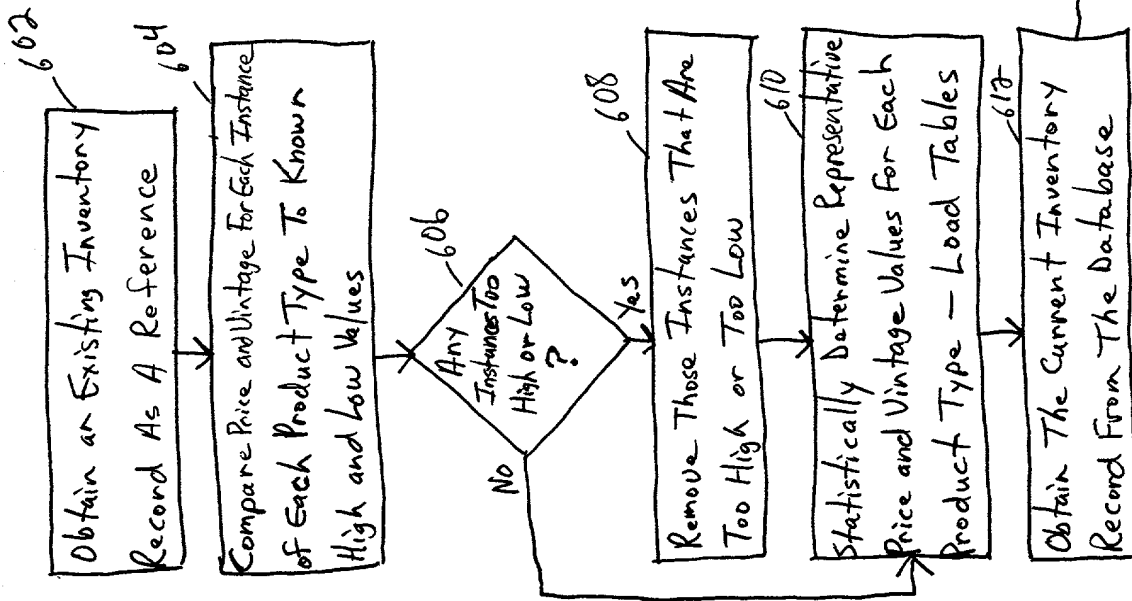 602
Obtain an Existing Inventory
Record As A Reference
604
Compare Price and Vintage For Each Instance
of Each Product Type To Known
High and Low Values
606
Any
Instances Too
High or Low
?
No
Yes
608
Remove Those Instances That Are
Too High or Too Low
610
Statistically Determine Representative
Price and Vintage Values For Each
Product Type — Load Tables
612
Obtain The Current Inventory
Record From The Database